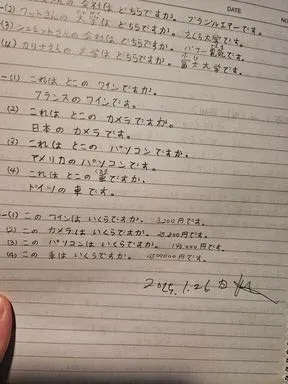 DATE
(2) ワットさんの 大学は どちらですか。 さくら大学です。
(3) シュミットさんの 会社は どちらですか。 パワー電気です。
(4) カリナさんの 大学は どちらですか。 富士大学です。
(1) これは どこの ワインですか。
フランスの ワインです。
(2) これは どこの カメラですか。
日本の カメラです。
(3) これは どこの パソコンですか。
アメリカの パソコンです。
(4) これは どこの 車ですか。
ドイツの 車です。
(1) この ワインは いくらですか。 3,200円です。
(2) この カメラは いくらですか。 25,200円です。
(3) この パソコンは いくらですか。
(4) この 車は いくらですか。 4,500,000円です。
1.26